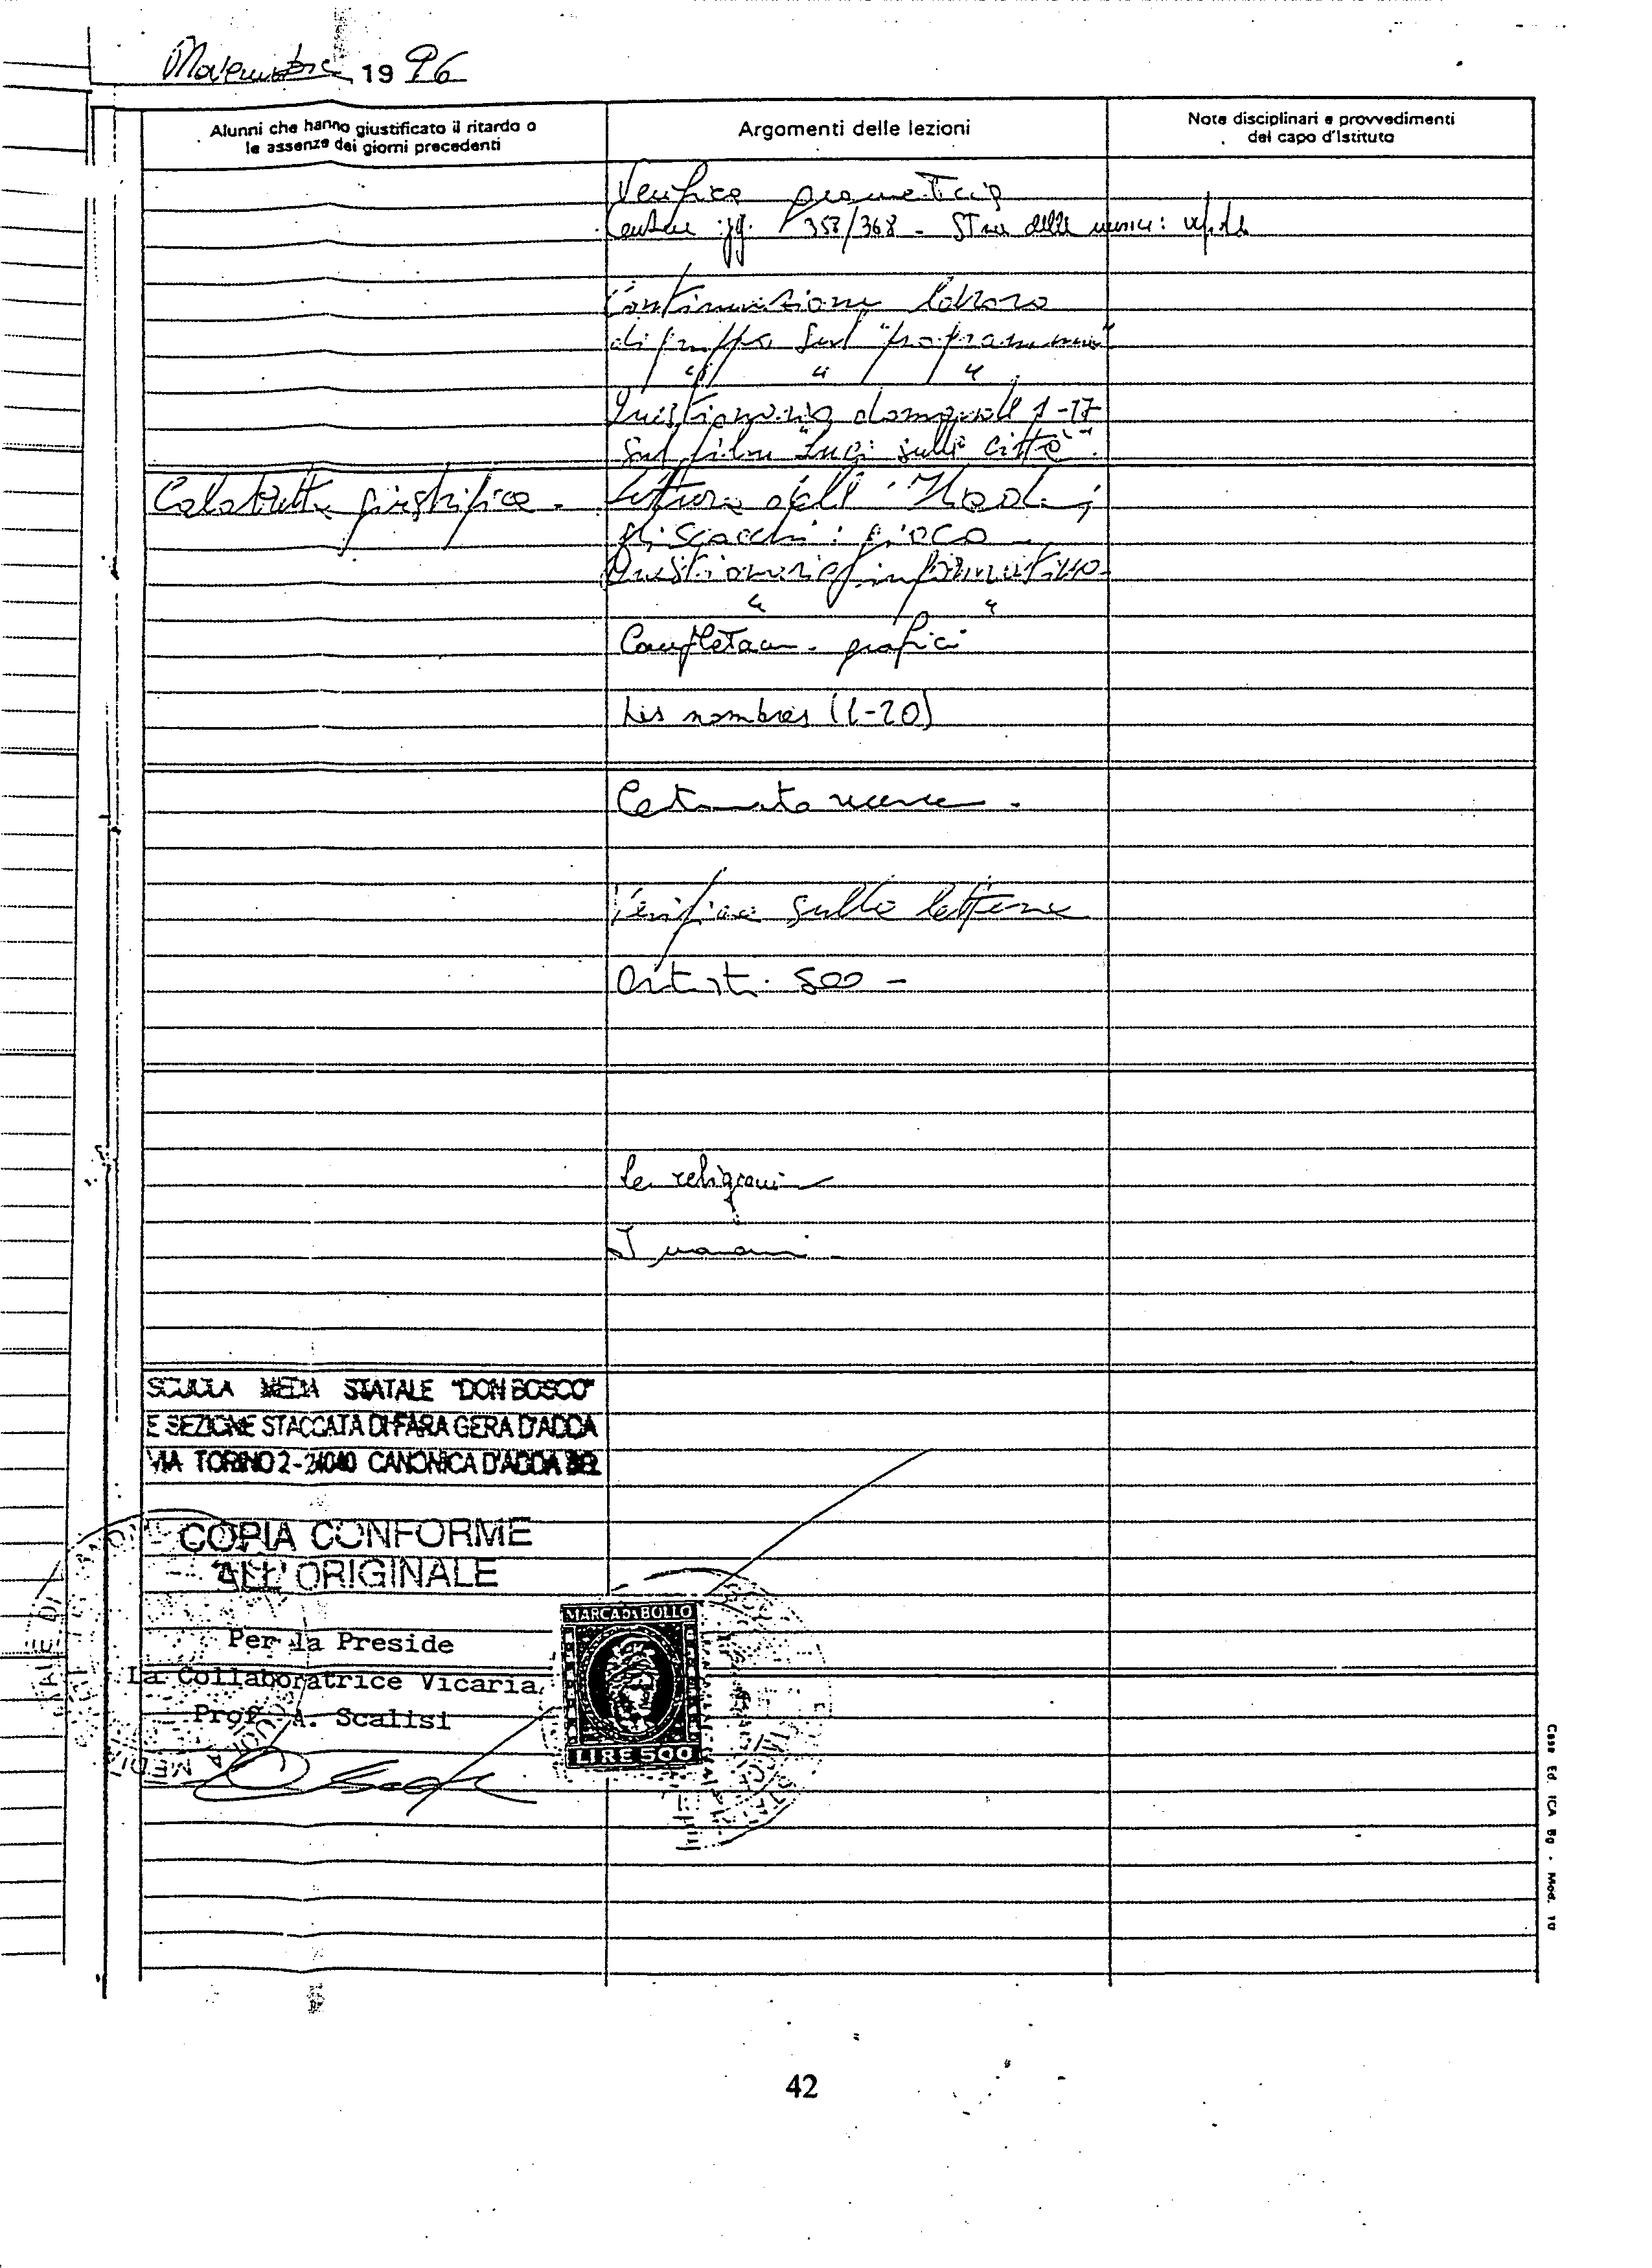 Novembre 1996
Alunni che hanno giustificato il ritardo o
le assenze dei giorni precedenti
Argomenti delle lezioni
Note disciplinari e provvedimenti
del capo d'Istituto
Verifica geometria
358/368 - delle
Continuazione lavoro
di gruppo sul "programma"
" " "
Questionario domande 1-17
sul film "Luci sulla città".
Calabretta giustifica - Lettura dell'Iliade;
gli scacchi: gioco -
Questionario informativo
" "
Completam. grafici
Les nombres (1-20)
Verifica sulle lettere
Artisti 500 -
Le religioni
SCUOLA MEDIA STATALE "DON BOSCO"
E SEZIONE STACCATA DI FARA GERA D'ADDA
VIA TORINO 2-24040 CANONICA D'ADDA BG
COPIA CONFORME
ALL'ORIGINALE
Per la Preside
La Collaboratrice Vicaria
Prof. A. Scalisi
MARCA DA BOLLO
LIRE 500
Casa Ed. ICA Bg - Mod. 10
42